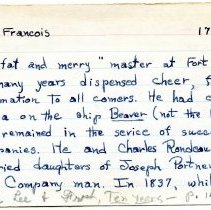 Francois 17
fat and merry "master at Fort
many years dispensed cheer, f
mation to all comers. He had c
a on the ship Beaver (not the
remained in the serice of succ
panies. He and Charles Rondeau
ried daughters of Joseph Portne
Company man. In 1837, whil
Lee & Frost Ten years - p. 1